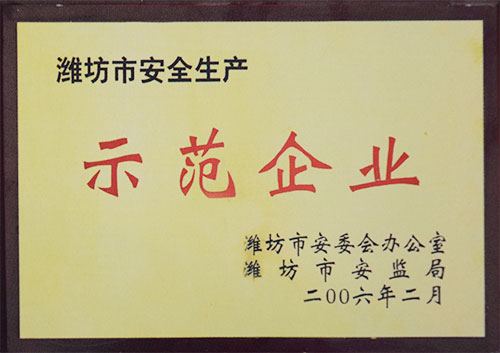 潍坊市安全生产
示范企业
潍坊市安委会办公室
潍坊市安监局
二00六年二月